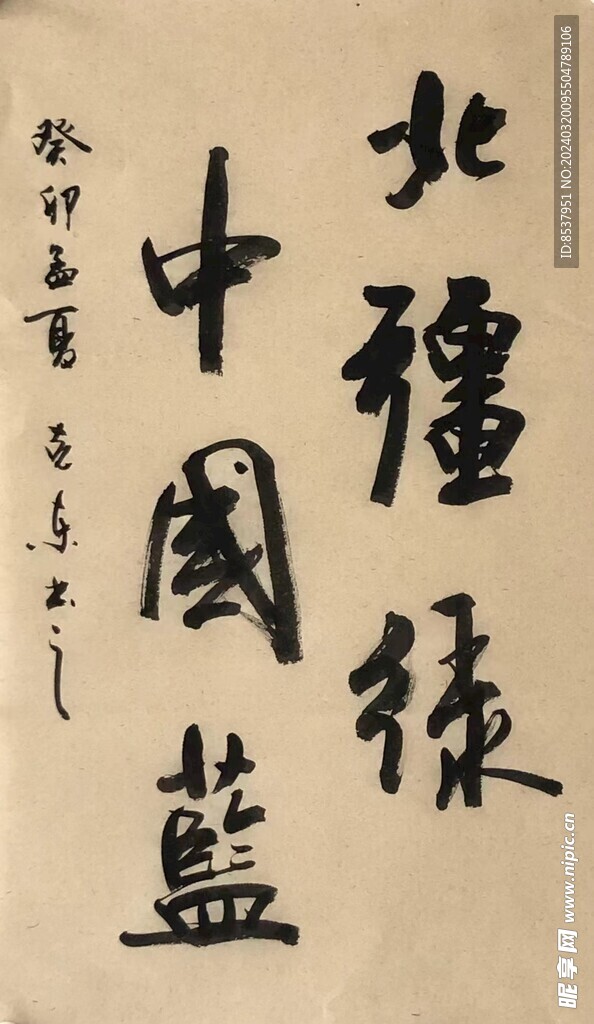 北疆绿
中國藍
癸卯孟夏 克东书之
ID:8537951 NO:20240320095504789106
昵享网 www.nipic.cn